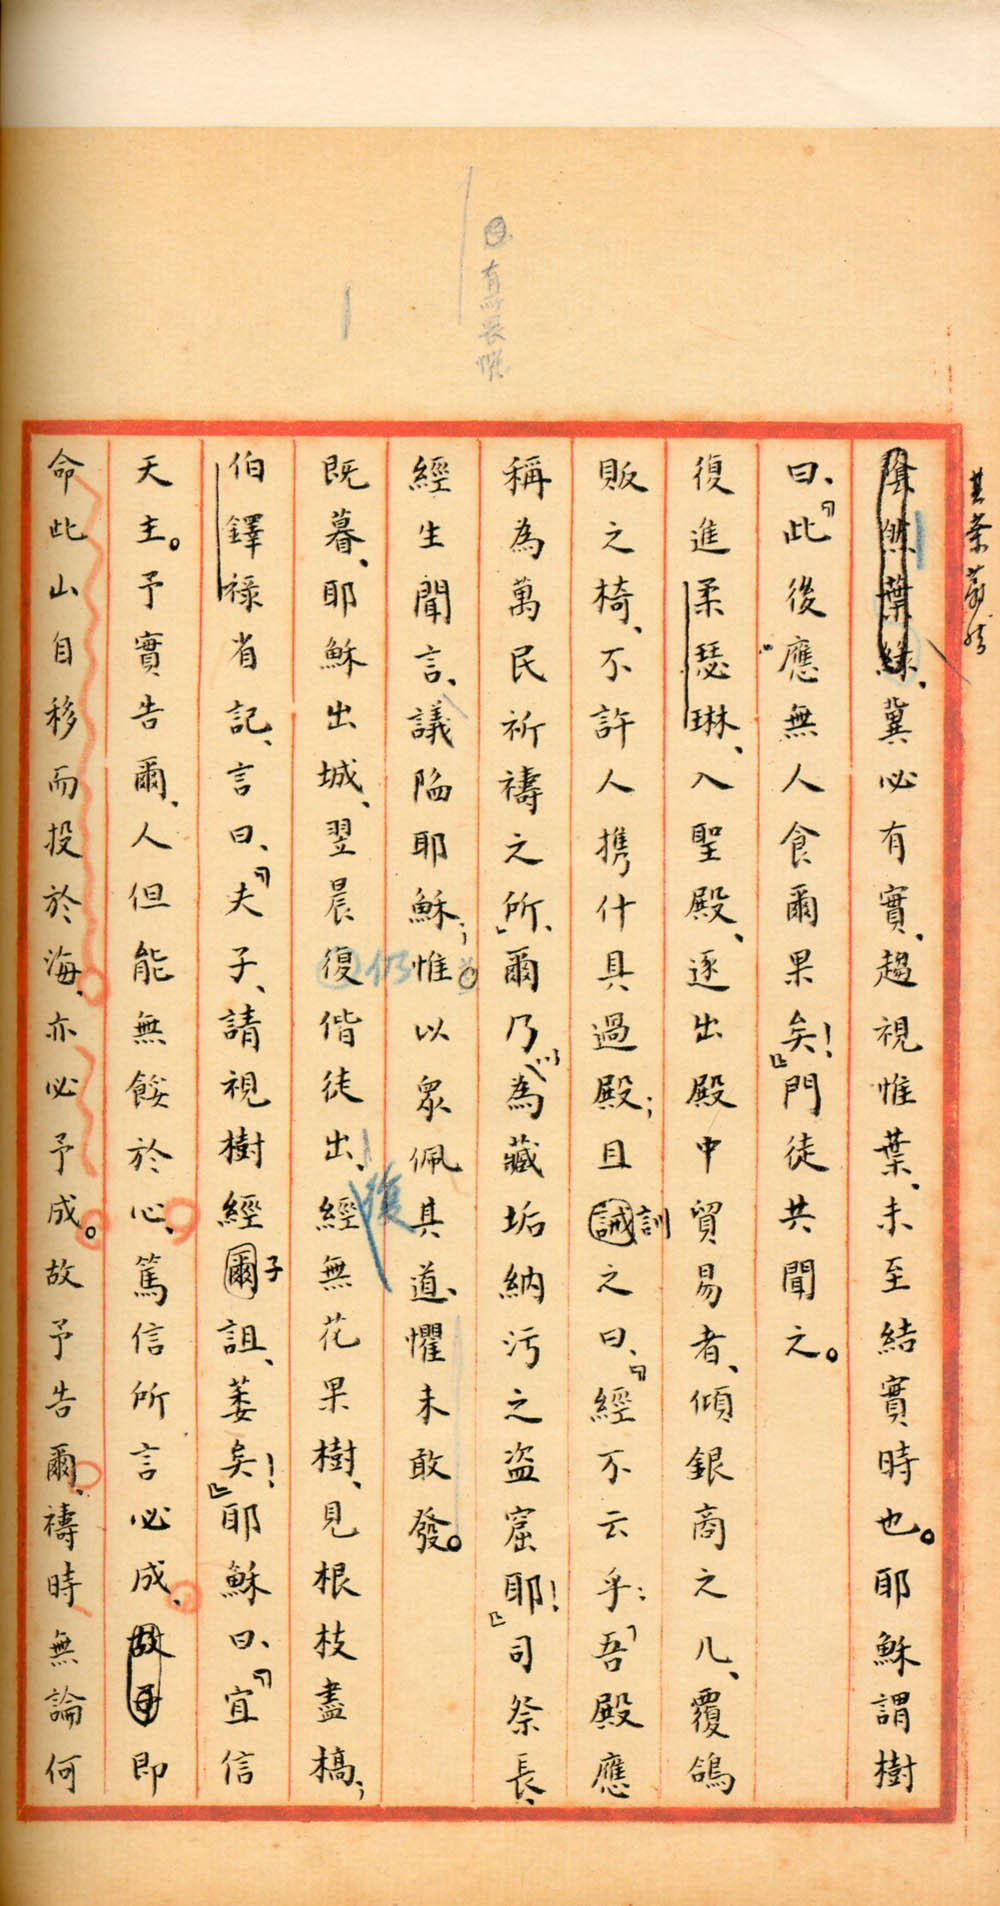 其葉蓁然
陰然葉綠、冀必有實、趨視惟葉、未至結實時也。耶穌謂樹
曰、『此後應無人食爾果矣！』門徒共聞之。
復進柔瑟琳、入聖殿、逐出殿中貿易者、傾銀商之几、覆鴿
販之椅、不許人攜什具過殿；且誡訓之曰、『經不云乎：「吾殿應
稱為萬民祈禱之所」、爾乃以為藏垢納污之盜窟耶！』司祭長、
經生聞言、議陷耶穌；惟以眾佩其道、懼未敢發。
有所畏懼
既暮、耶穌出城、翌晨復仍偕徒出、復經無花果樹、見根枝盡槁；
伯鐸祿省記、言曰、『夫子、請視樹經爾子詛、萎矣！』耶穌曰、『宜信
天主。予實告爾、人但能無餒於心、篤信所言必成、故予即
命此山自移而投於海、亦必予成。故予告爾、禱時無論何